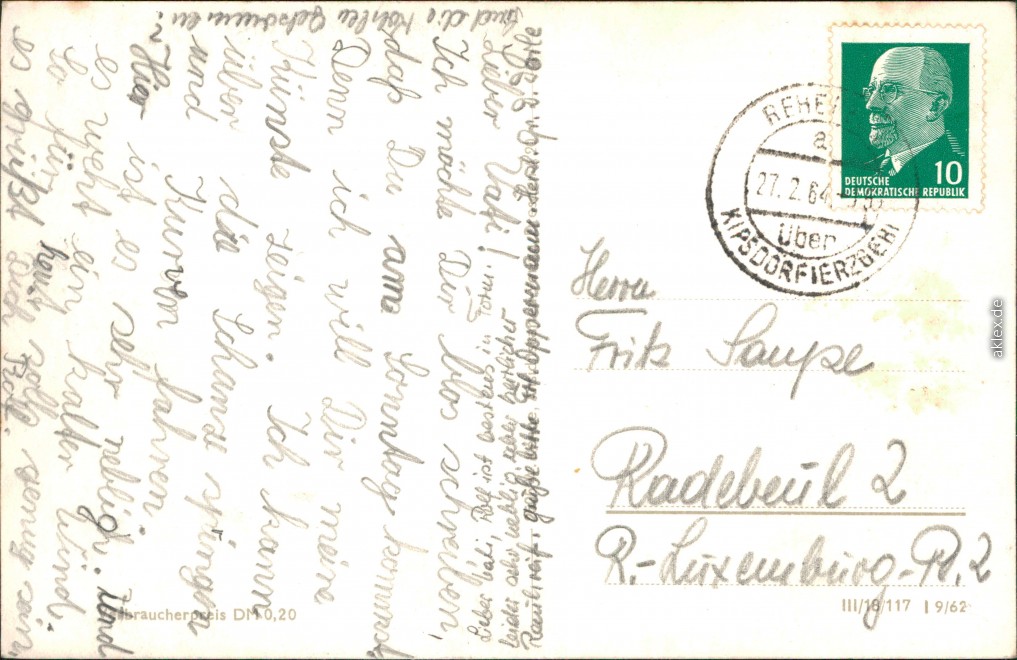 Lieber Vati!
Ich möchte Dir blos schreiben
daß Du am Sonntag kommst
Denn ich will Dir meine
Künste zeigen. Ich kann
über die Schanze springen
und Kurven fahren.
Hier ist es sehr neblig. und
es weht ein kalter Wind.
So jürg heute solls wenig sein
es grüßt Dich Rolf.
und die Kohlen gekommen?
Lieber Vati, Rolf ist bestens in Form.
leider sehr neblig, aber herrlicher
Rauhreif. grüße bitte
DEUTSCHE
DEMOKRATISCHE REPUBLIK
10
REHE
a
27.2.64
über
KIPSDORF/ERZGEB
Herrn
Fritz Saupe
Radebeul 2
R.-Luxemburg-Pl. 2
braucherpreis DM 0,20
III/18/117 I 9/62
aklex.de